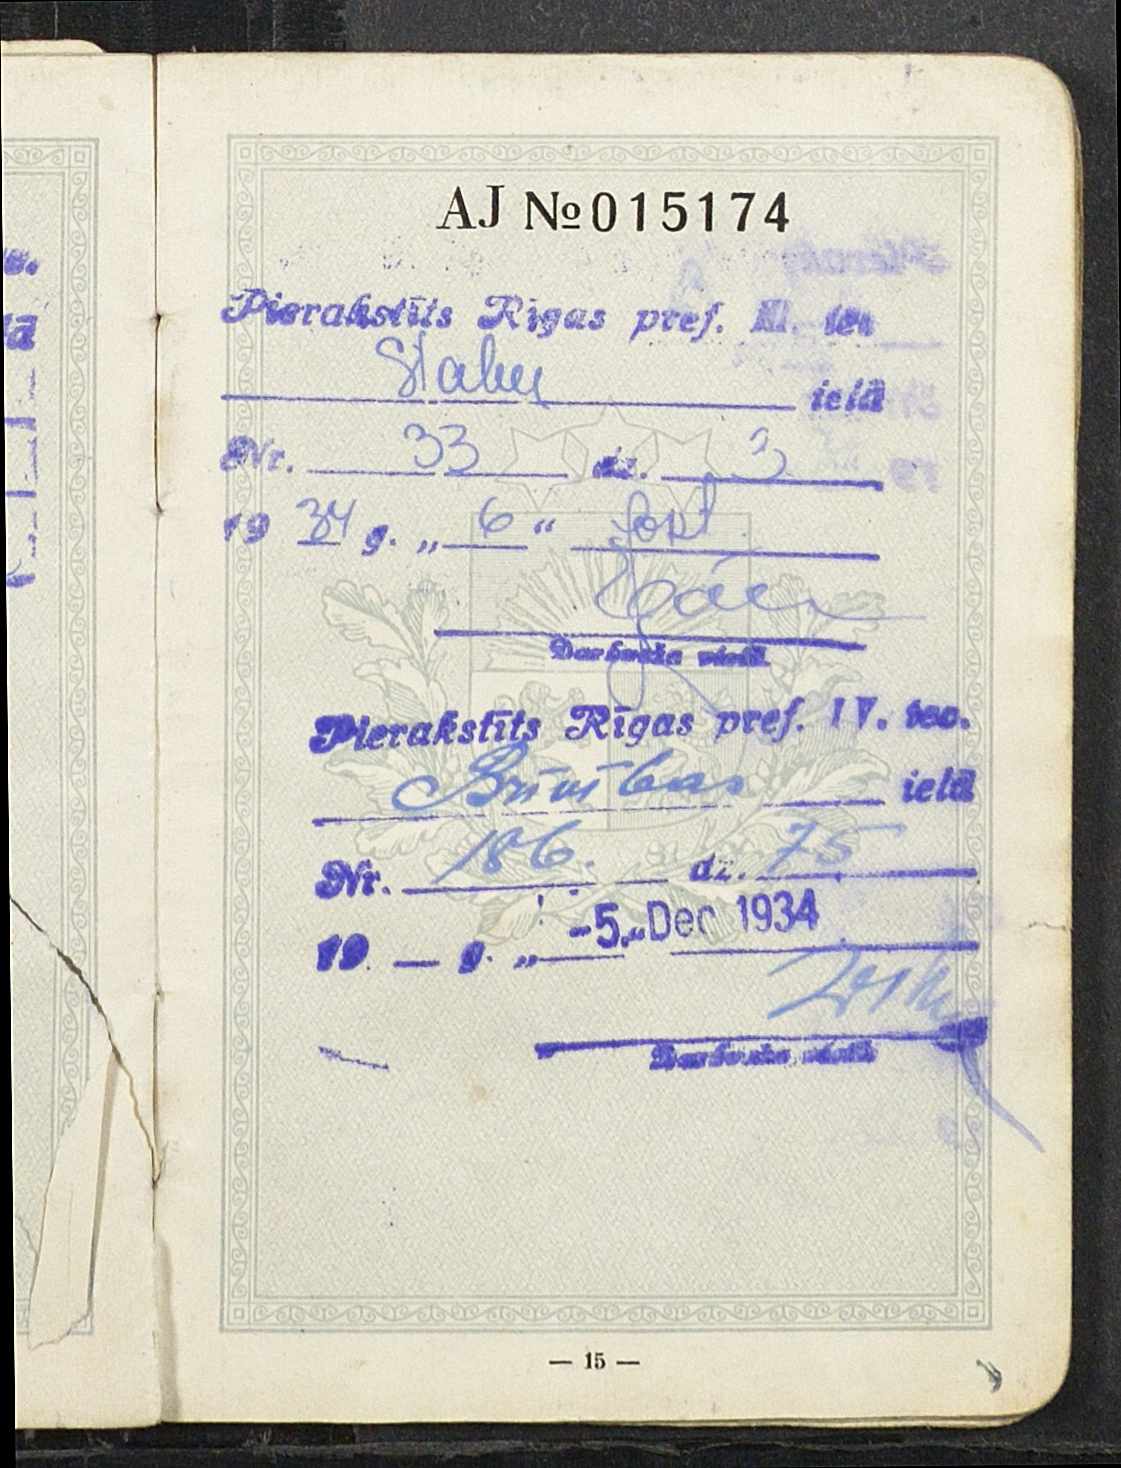 AJ № 015174
Pierakstīts Rīgas pref. III. iec
Stabu
ielā
Nr. 33 dz. 3
19 34 g. „ 6 “ sept
Darbveža vietā
Pierakstīts Rīgas pref. IV. iec.
Brīvības ielā
Nr. 186. dz. 75
19 — g. „ -5.“ Dec 1934
Darbveža vietā
— 15 —